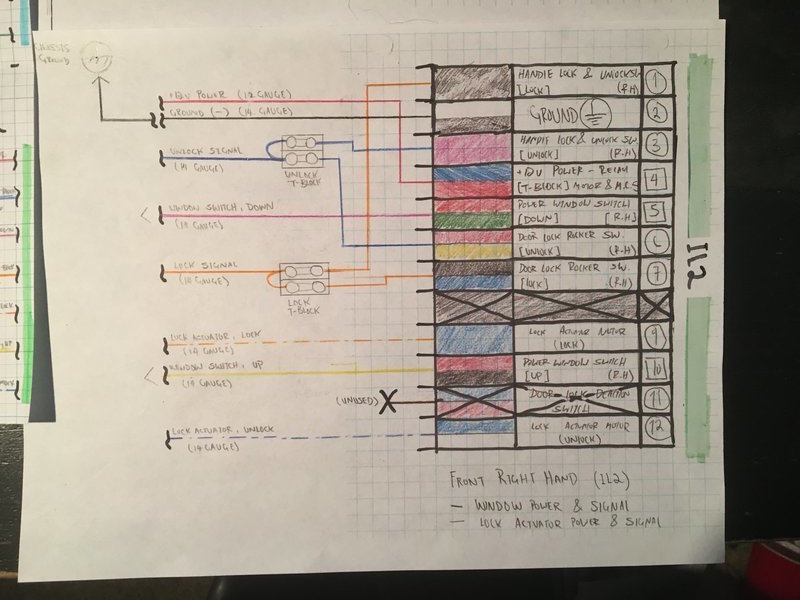 CHASSIS
GROUND
+12V POWER (12 GAUGE)
GROUND (-) (14 GAUGE)
UNLOCK SIGNAL
(14 GAUGE)
UNLOCK
T-BLOCK
WINDOW SWITCH, DOWN
(14 GAUGE)
LOCK SIGNAL
(18 GAUGE)
LOCK
T-BLOCK
LOCK ACTUATOR, LOCK
(14 GAUGE)
WINDOW SWITCH, UP
(14 GAUGE)
(UNUSED)
LOCK ACTUATOR, UNLOCK
(14 GAUGE)
HANDLE LOCK & UNLOCK SW
[LOCK] (R.H)
1
GROUND
2
HANDLE LOCK & UNLOCK SW.
[UNLOCK] (R.H)
3
+12V POWER - RELAY
[T-BLOCK] MOTOR &
4
POWER WINDOW SWITCH
[DOWN] [R.H]
5
DOOR LOCK ROCKER SW.
[UNLOCK] (R.H)
6
DOOR LOCK ROCKER SW.
[LOCK] (R.H)
7
LOCK ACTUATOR MOTOR
(LOCK)
9
POWER WINDOW SWITCH
[UP] (R.H)
10
DOOR-LOCK DETECTION
SWITCH
11
LOCK ACTUATOR MOTOR
(UNLOCK)
12
IL2
FRONT RIGHT HAND (IL2)
- WINDOW POWER & SIGNAL
- LOCK ACTUATOR POWER & SIGNAL